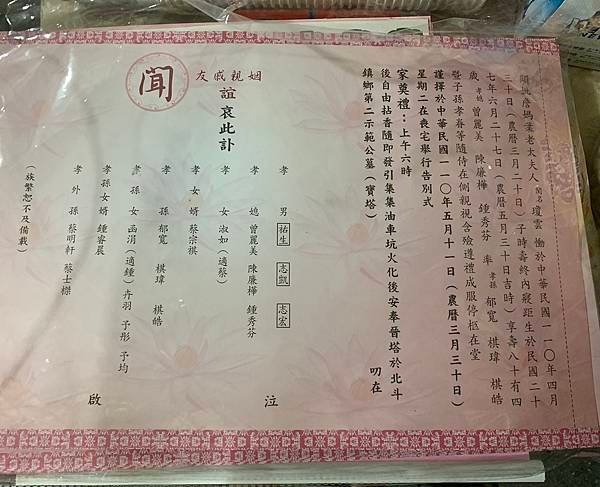 顯妣詹媽葉老太夫人閨名瓊雲 慟於中華民國一一〇年四月
三十日（農曆三月二十日）子時壽終內寢距生於民國二十
七年六月二十七日（農曆五月三十日吉時）享壽八十有四
歲 孝媳 曾麗美 陳廉樺 鍾秀芬 率 孝孫 郁寬 棋瑋 棋皓
暨子孫孝眷等隨侍在側親視含殮遵禮成服停柩在堂
謹擇於中華民國一一〇年五月十一日（農曆三月三十日）
星期二在喪宅舉行告別式
家奠禮：上午六時
後自由拈香隨即發引集集油車坑火化後安奉晉塔於北斗
鎮鄉第二示範公墓（寶塔）
叨在
姻親戚友
聞
誼哀此訃
孝男 祐生 志凱 志宏 泣
孝媳 曾麗美 陳廉樺 鍾秀芬
孝女 淑如（適蔡）
孝女婿 蔡宗祺
孝孫 郁寬 棋瑋 棋皓
孝孫女 函涓（適鍾） 卉羽 予彤 予均
孝孫女婿 鍾睿宸
孝外孫 蔡明軒 蔡士櫸
（族繁恕不及備載）
啟